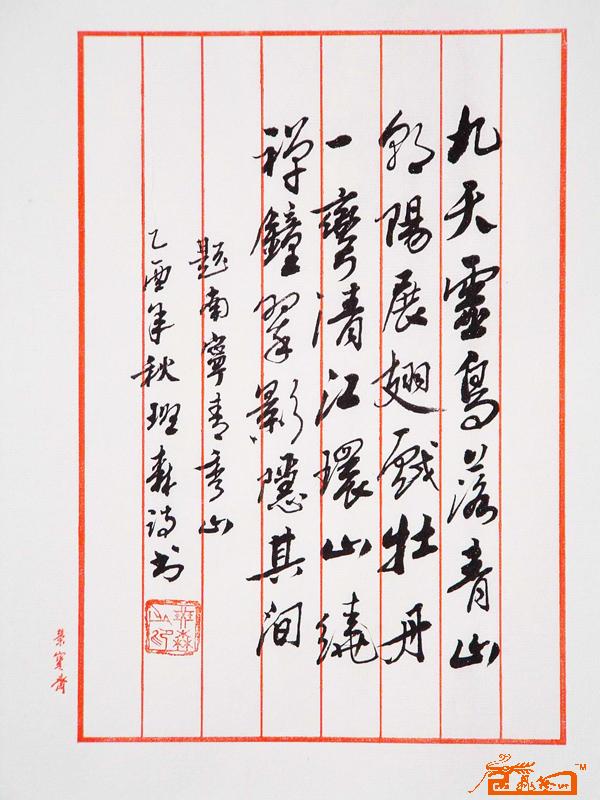 九天靈鳥落青山
朝陽展翅戲牡丹
一彎清江環山繞
禅鐘翠影隱其间
题南寧青秀山
乙酉年秋班森诗书
班森
榮寳齋